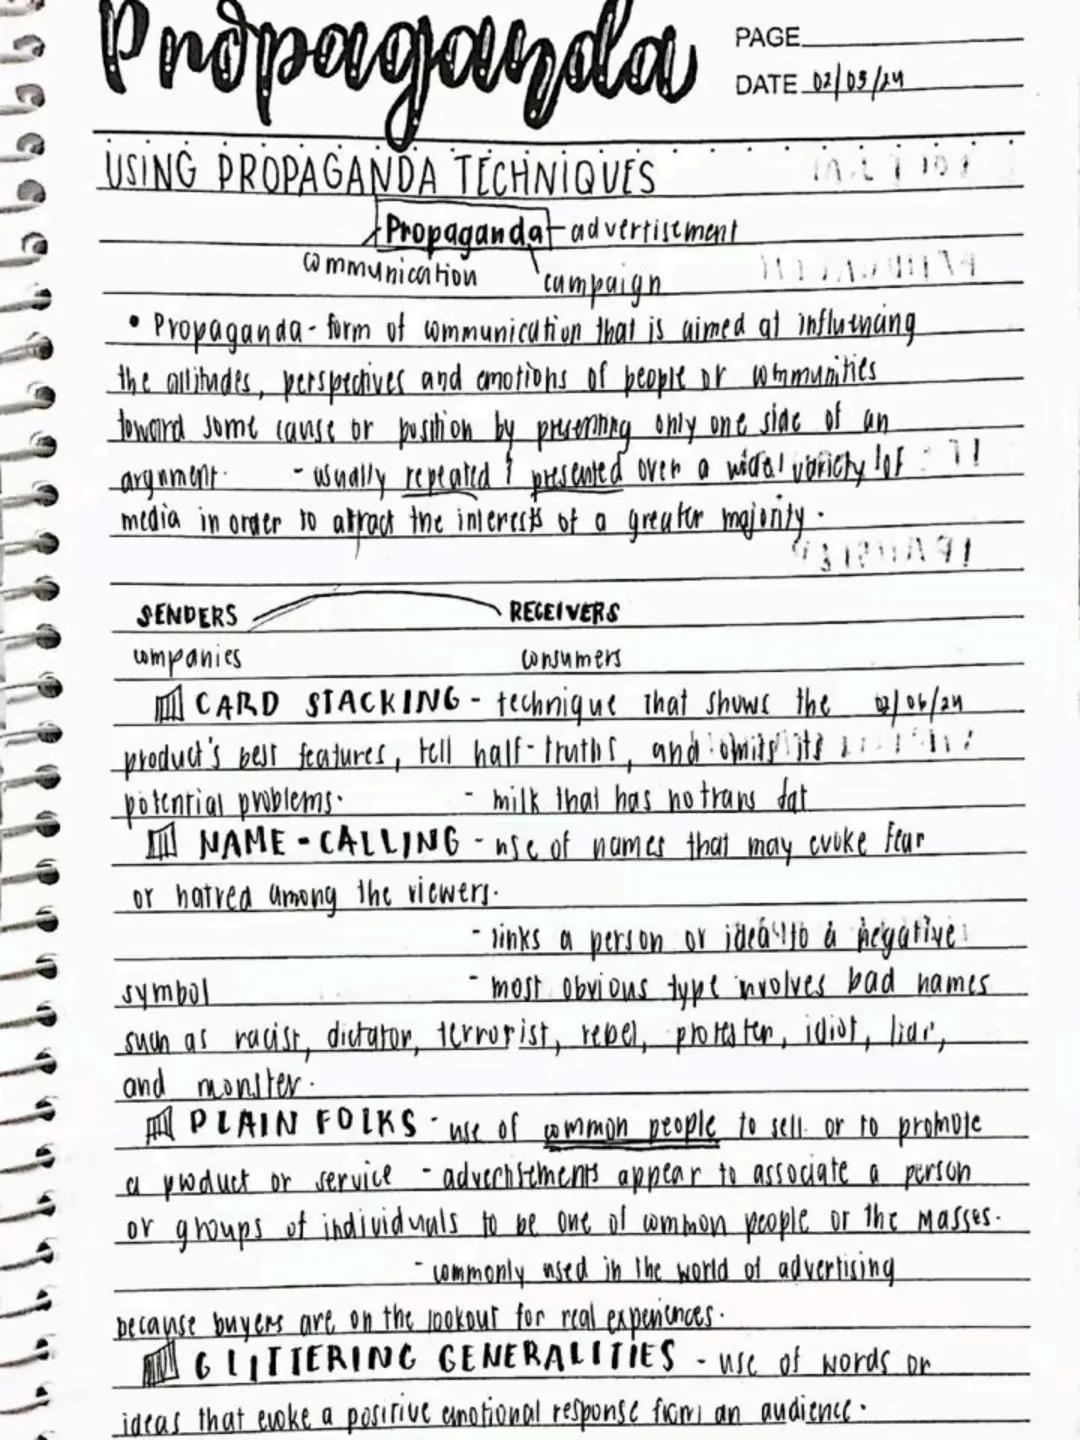 Propaganda
PAGE
DATE 02/05/24
USING PROPAGANDA TECHNIQUES
Propaganda - advertisement
communication
campaign
• Propaganda - form of communication that is aimed at influencing
the attitudes, perspectives and emotions of people or communities
toward some cause or position by presenting only one side of an
argument. - usually repeated & presented over a wide variety of
media in order to attract the interests of a greater majority.
SENDERS RECEIVERS
companies consumers
CARD STACKING - technique that shows the 02/06/24
product's best features, tell half-truths, and omits its
potential problems. - milk that has no trans fat
NAME-CALLING - use of names that may evoke fear
or hatred among the viewers.
- links a person or idea to a negative
symbol - most obvious type involves bad names
such as racist, dictator, terrorist, rebel, protester, idiot, liar,
and monster.
PLAIN FOLKS - use of common people to sell or to promote
a product or service - advertisements appear to associate a person
or groups of individuals to be one of common people or the masses.
- commonly used in the world of advertising
because buyers are on the lookout for real experiences.
GLITTERING GENERALITIES - use of words or
ideas that evoke a positive emotional response from an audience.